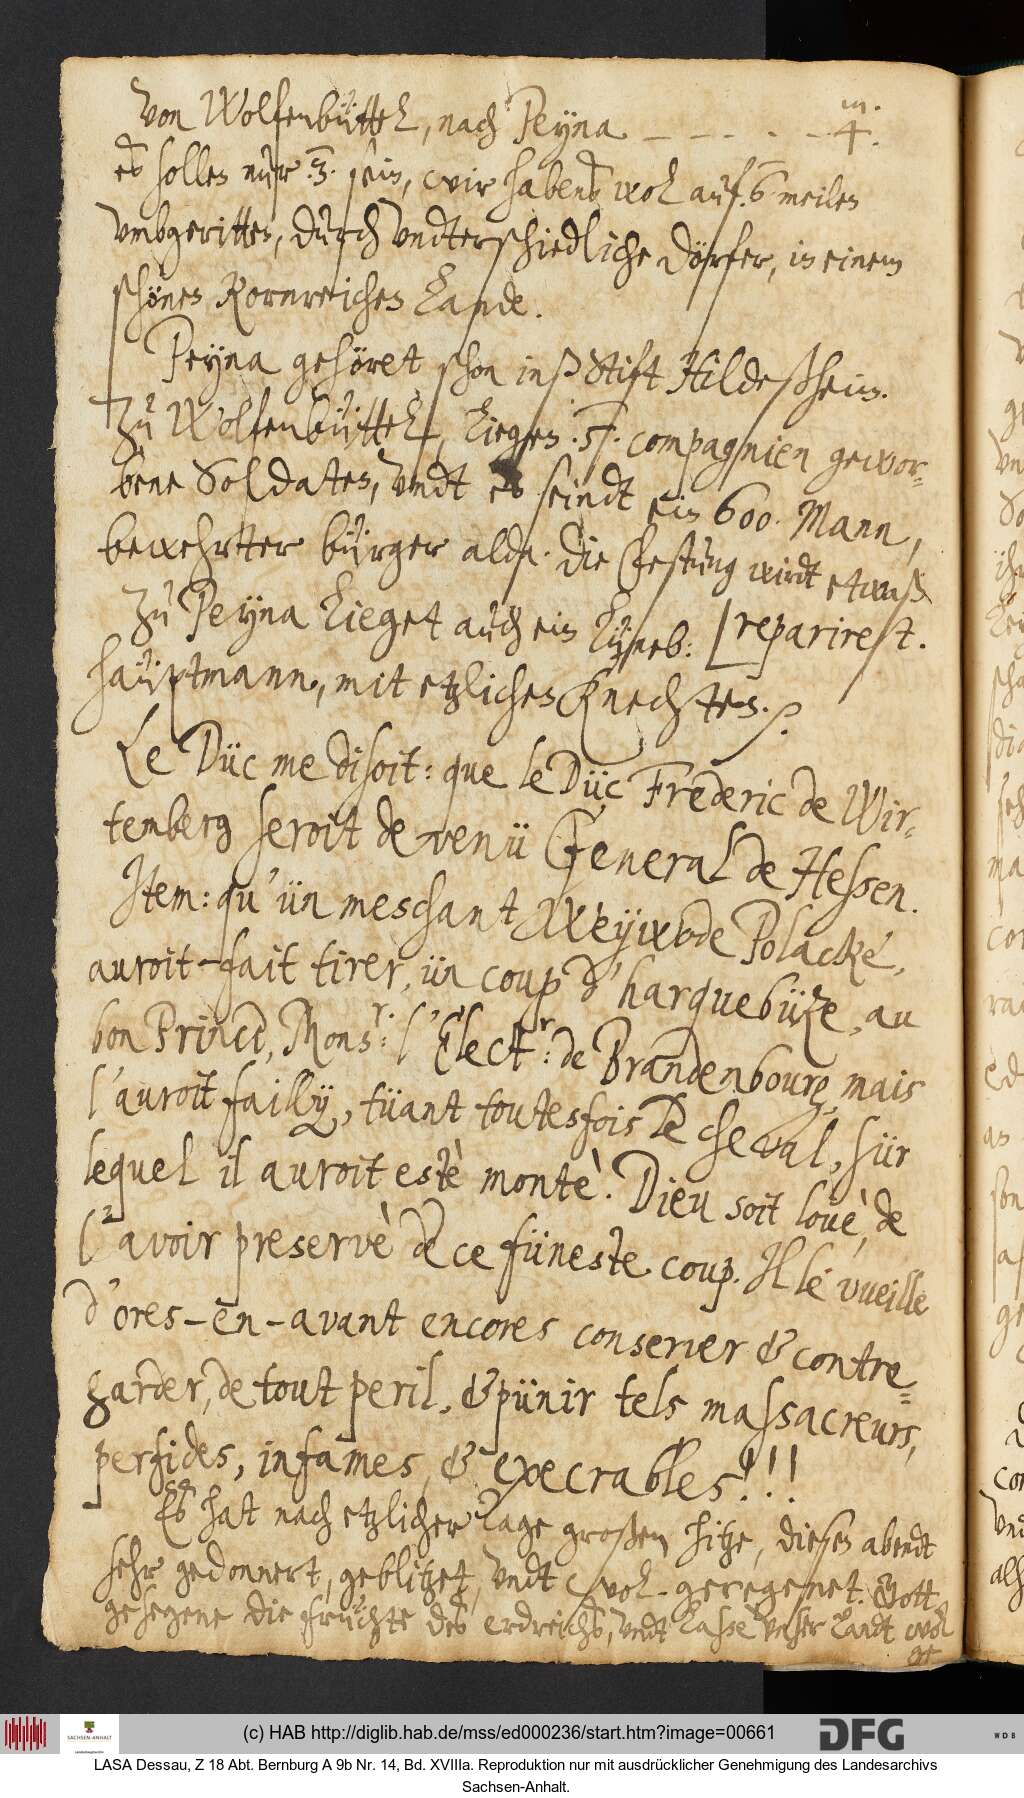 Von Wolfenbüttel, nach Peÿna – – – · – 4. m:
es sollen nur .3. sein, wir habens wol auf .6 meilen
vmbgeritten, durch vndterschiedliche dörfer, in einem
schönen Kornreichen Lande.
Peÿna gehöret schon inß Stift Hildeßheim.
Zu Wolfenbüttel, liegen .5. compagnien gewor-
bene Soldaten, vndt es seindt ein 600. Mann,
bewehrter bürger alda. die Festung wirdt etwaß
[reparirest.
Zu Peÿna lieget auch ein Lüneb:
hauptmann, mit etzlichen Knechten.
Le Düc me disoit: que le Düc Frederic de Wir-
temberg seroit devenü General de Hessen.
Item: qu'ün meschant Weÿwode Polacké,
auroit-fait tirer, ün coup d'harquebüze, au
bon Prince, Mons.r: l'Elect.r: de Brandenbourg, mais
l'auroit faillÿ, tüant toutesfois le cheval, sür
lequel il auroit estè montè. Dieu soit louè, de
l'avoir preservè de ce füneste coup. Il le vueille
d'ores-en-avant encores conserver & contre-
garder, de tout peril, & pünir tels massacreurs,
perfides, infames, & execrables!!!
Es hat nach etzlicher Tage großen hitze, diesen abendt
sehr gedonnert, geblitzet, vndt wol geregenet. Gott
gesegene die früchte des erdreichs, vndt lasse vnser landt wol
(c) HAB http://diglib.hab.de/mss/ed000236/start.htm?image=00661
SACHSEN-ANHALT
Landeshauptarchiv
DFG
WDB
LASA Dessau, Z 18 Abt. Bernburg A 9b Nr. 14, Bd. XVIIIa. Reproduktion nur mit ausdrücklicher Genehmigung des Landesarchivs
Sachsen-Anhalt.